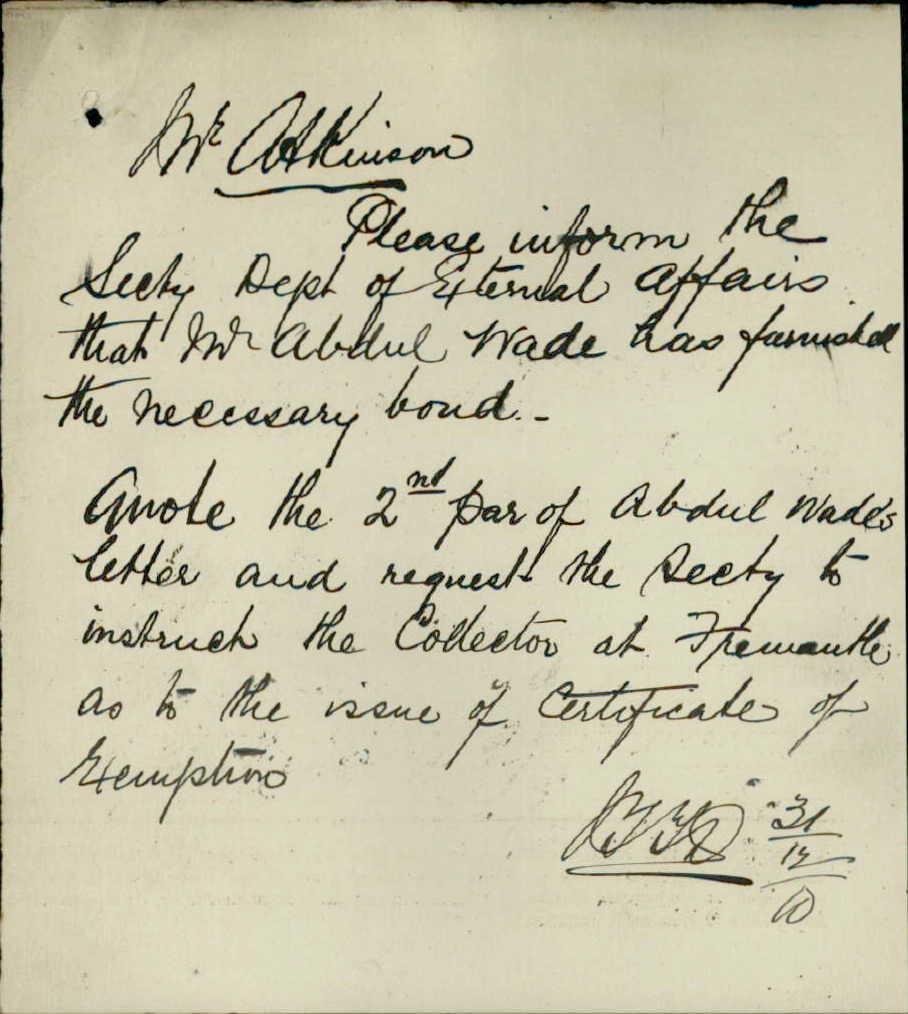 Mr Atkinson
Please inform the
Secty Dept of External Affairs
that Mr Abdul Wade has furnished
the necessary bond. -
Quote the 2nd par of Abdul Wade's
letter and request the Secty to
instruct the Collector at Fremantle
as to the issue of Certificate of
Exemption
31
12